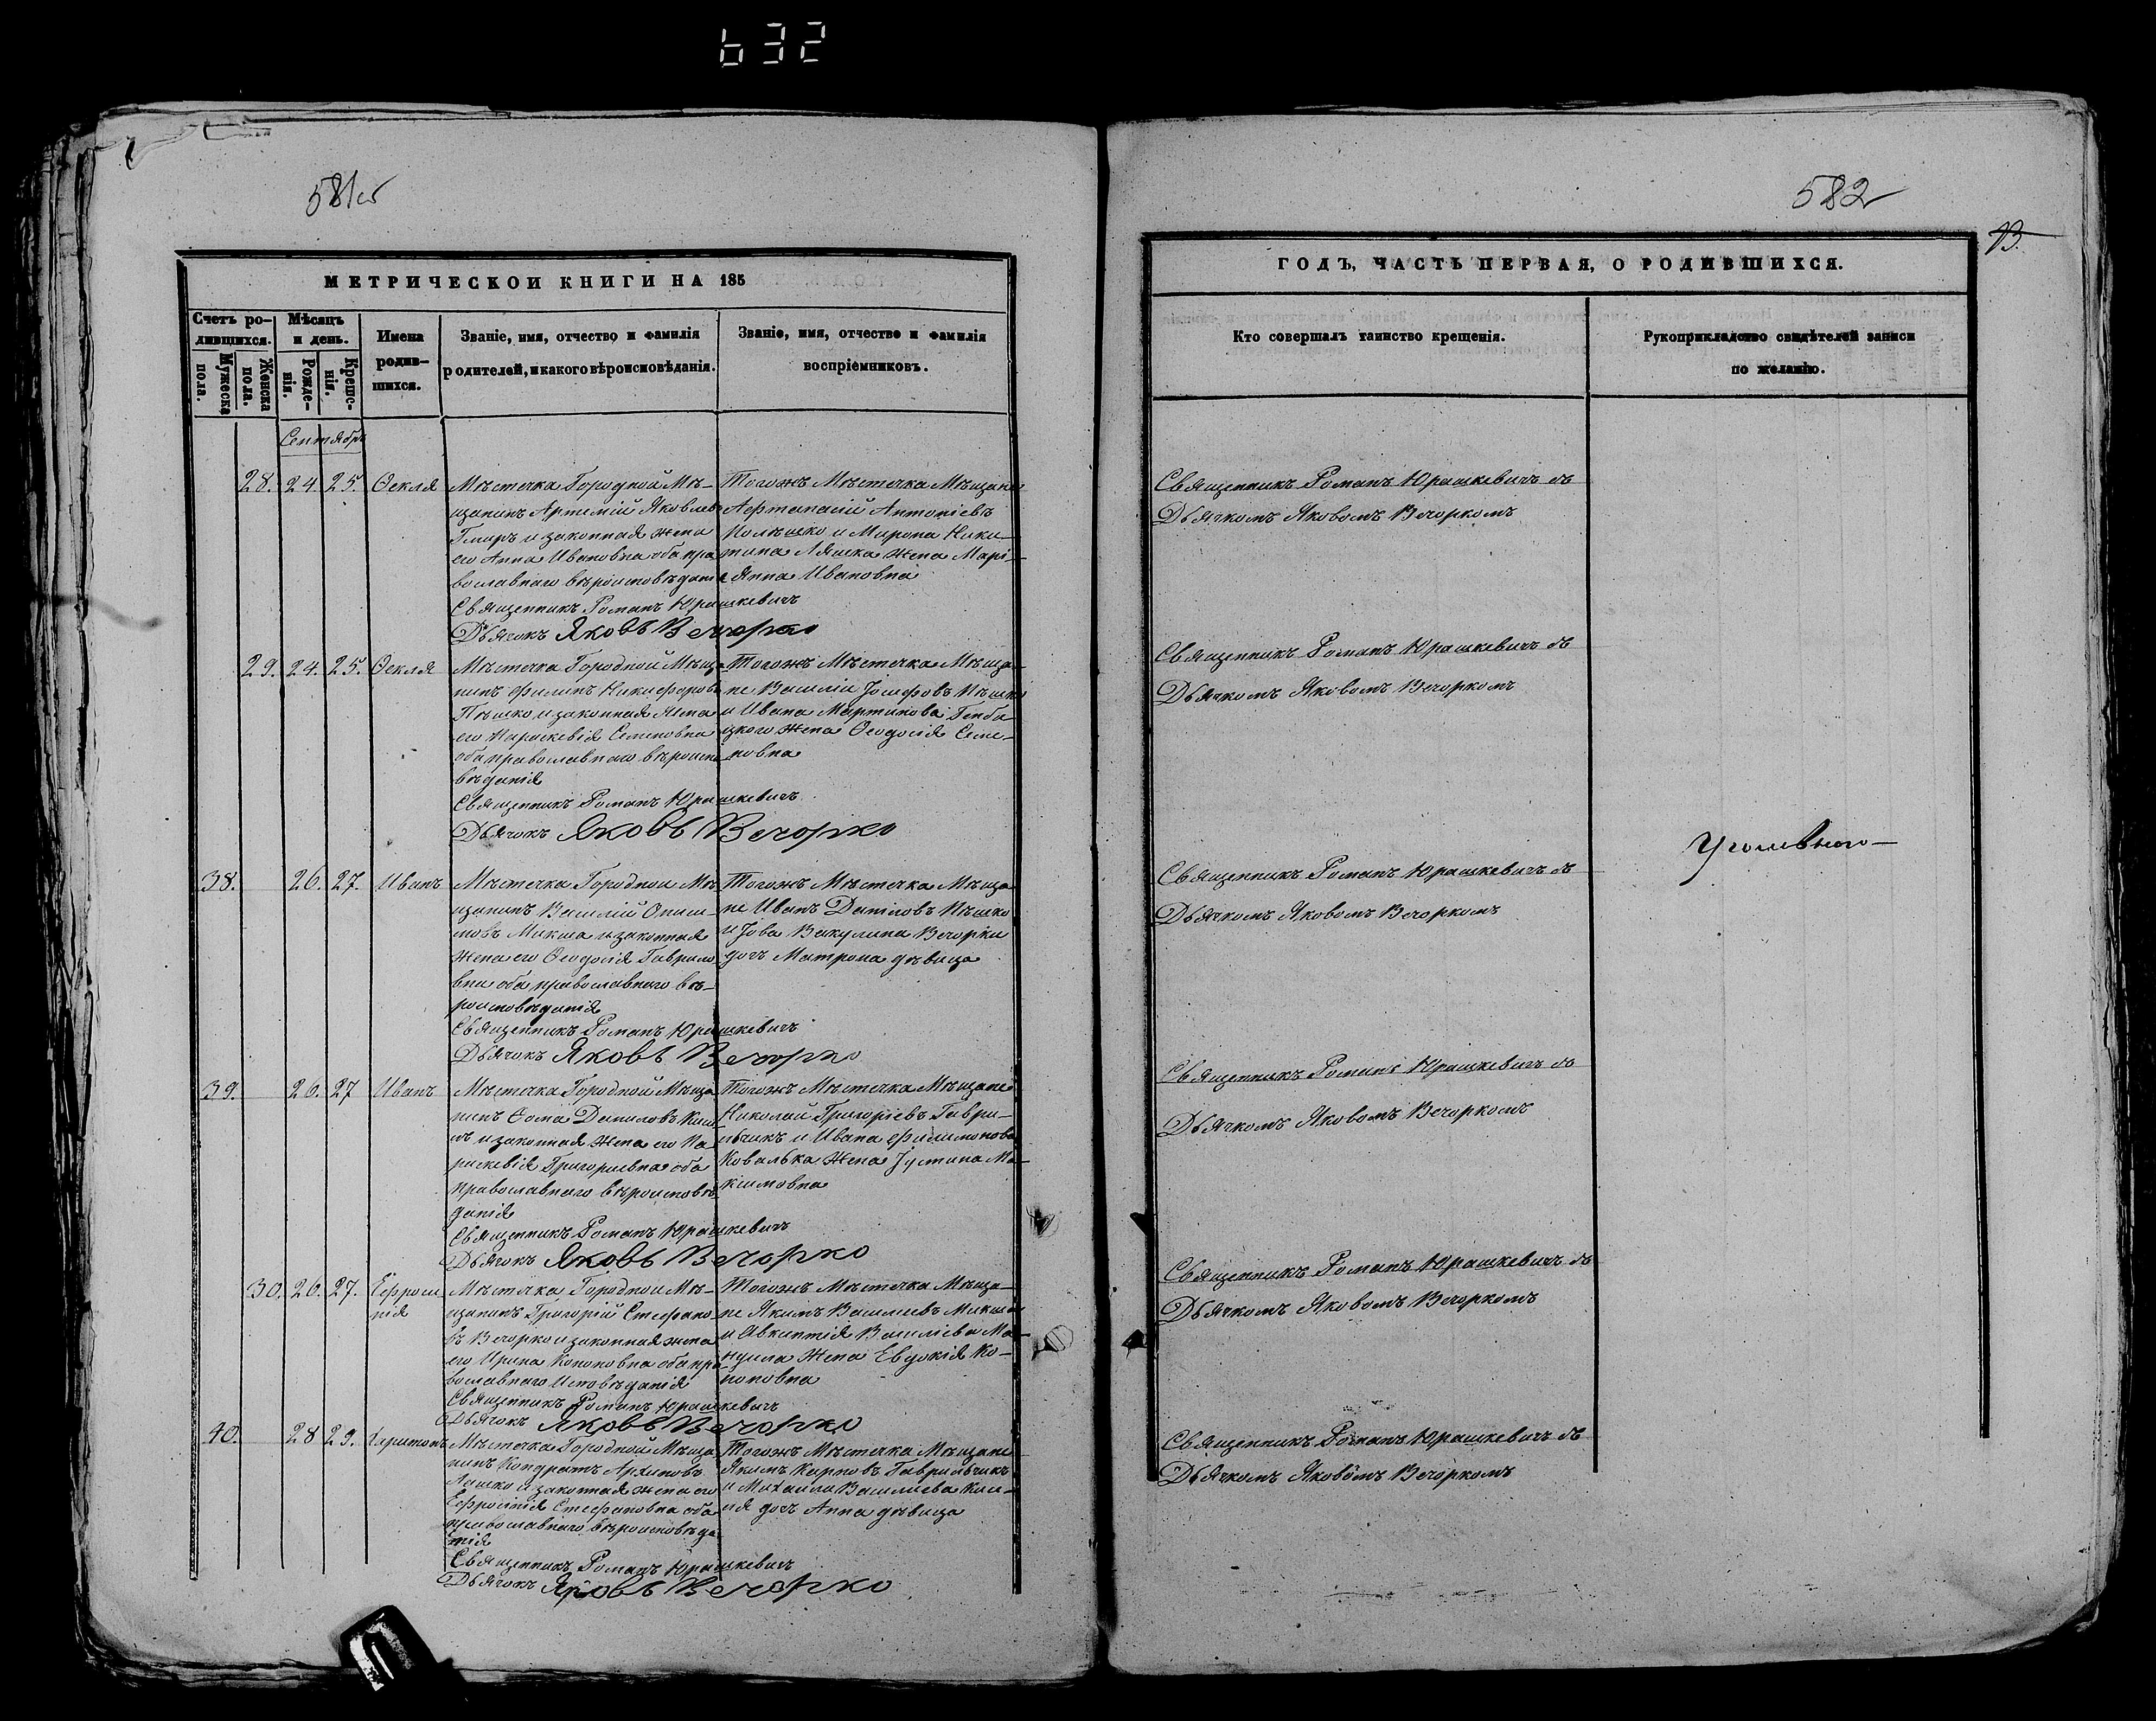 632
581об
582
13.
МЕТРИЧЕСКОЙ КНИГИ НА 185
ГОДЪ, ЧАСТЬ ПЕРВАЯ, О РОДИВШИХСЯ.
Счетъ ро-
дившихся.
Мужеска
пола.
Женска
пола.
Мѣсяцъ
и день.
Рожде-
нія.
Креще-
нія.
Имена
родив-
шихся.
Званіе, имя, отчество и фамилія
родителей, и какого вѣроисповѣданія.
Званіе, имя, отчество и фамилія
воспріемниковъ.
Кто совершалъ таинство крещенія.
Рукоприкладство свидѣтелей записи
по желанію.
Сентябрь
28. 24. 25. Ѳекля
Мѣстечка Городной Мѣ-
щанинъ Артемій Яковлевъ
и законная жена
его Анна Ивановна оба пра
вославнаго вѣроисповѣданія
Священникъ Романъ Юрашкевичъ
Дьячокъ Яковъ Вечорко
Тогожъ Мѣстечка Мѣщане
Афтанасій Антоніевъ
Полѣшко и Мирона Ники-
тина Ляшка жена Марі-
янна Ивановна
Священникъ Романъ Юрашкевичъ съ
Дьячкомъ Яковомъ Вечоркомъ
29. 24. 25. Ѳекля
Мѣстечка Городной Мѣща
нинъ Филипъ Никифоровъ
Пѣшко и законная жена
его Параскевія Семеновна
оба православнаго вѣроиспо
вѣданія
Священникъ Романъ Юрашкевичъ
Дьячокъ Яковъ Вечорко
Тогожъ Мѣстечка Мѣща-
не Василій Іосифовъ Пѣшко
и Ивана Мартинова
жена Ѳеодосія Семе-
новна
Священникъ Романъ Юрашкевичъ съ
Дьячкомъ Яковомъ Вечоркомъ
38. 26. 27. Иванъ
Мѣстечка Городной Мѣ
щанинъ Василій Ониси-
мовъ Микша и законная
жена его Ѳеодосія Гаврило
вна оба православнаго вѣ-
роисповѣданія
Священникъ Романъ Юрашкевичъ
Дьячокъ Яковъ Вечорко
Тогожъ Мѣстечка Мѣща
не Иванъ Даниловъ Пѣшко
и Іова Вакулина Вечорки
дочь Матрона дѣвица
Священникъ Романъ Юрашкевичъ съ
Дьячкомъ Яковомъ Вечоркомъ
39. 26. 27 Иванъ
Мѣстечка Городной Мѣща
нинъ Ѳома Даниловъ
и законная жена его Па
раскевія Григориевна оба
православнаго вѣроисповѣ
данія
Священникъ Романъ Юрашкевичъ
Дьячокъ Яковъ Вечорко
Тогожъ Мѣстечка Мѣщане
Николай Григоріевъ Гаври-
льчикъ и Ивана Филимонова
Ковалька жена Іустина Ма-
ксимовна
Священникъ Романъ Юрашкевичъ съ
Дьячкомъ Яковомъ Вечоркомъ
30. 26. 27. Ефроси
нія
Мѣстечка Городной Мѣ-
щанинъ Григорій Стефано
въ Вечорко и законная жена
его Ирина Кононовна оба пра
вославнаго Исповѣданія
Священникъ Романъ Юрашкевичъ
Дьячокъ Яковъ Вечорко
Тогожъ Мѣстечка Мѣща-
не Якимъ Василіевъ Микша
и Василіева
жена Евдокія Ко-
ноновна
Священникъ Романъ Юрашкевичъ съ
Дьячкомъ Яковомъ Вечоркомъ
40. 28 29. Харитонъ
Мѣстечка Городной Мѣща
нинъ Кондратъ Архиповъ
Ляшко и законная жена его
Ефросинія Стефановна оба
православнаго вѣроисповѣда
нія
Священникъ Романъ Юрашкевичъ
Дьячокъ Яковъ Вечорко
Тогожъ Мѣстечка Мѣщане
Якимъ Карповъ Гаврильчикъ
и Михаила Василіева
дочь Анна дѣвица
Священникъ Романъ Юрашкевичъ съ
Дьячкомъ Яковомъ Вечоркомъ